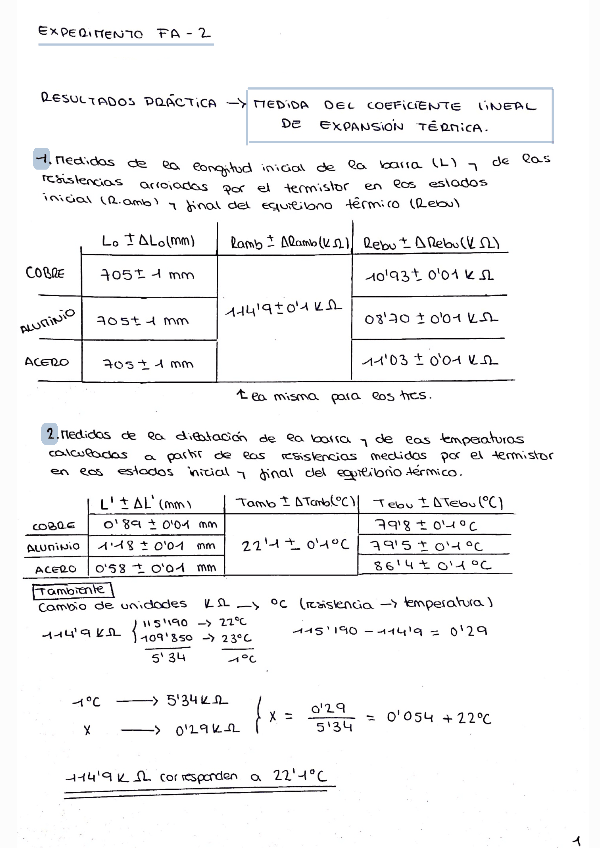 EXPERIMENTO FA - 2
RESULTADOS PRÁCTICA → MEDIDA DEL COEFICIENTE LINEAL
DE EXPANSIÓN TÉRMICA.
1. Medidas de la longitud inicial de la barra (L) y de las
resistencias arrojadas por el termistor en los estados
inicial (R.amb) y final del equilibrio térmico (Rebu)
L₀ ± ΔL₀(mm) Ramb ± ΔRamb(KΩ) Rebu ± ΔRebu(KΩ)
COBRE 705 ± 1 mm 10'93 ± 0'01 KΩ
114'9 ± 0'1 KΩ
ALUMINIO 705 ± 1 mm 08'70 ± 0'01 KΩ
ACERO 705 ± 1 mm 11'03 ± 0'01 KΩ
↑ La misma para los tres.
2. Medidas de la dilatación de la barra y de las temperaturas
calculadas a partir de las resistencias medidas por el termistor
en los estados inicial y final del equilibrio térmico.
L' ± ΔL' (mm) Tamb ± ΔTamb(ºC) Tebu ± ΔTebu(ºC)
COBRE 0'89 ± 0'01 mm 79'8 ± 0'1ºC
ALUMINIO 1'18 ± 0'01 mm 22'1 ± 0'1ºC 79'5 ± 0'1ºC
ACERO 0'58 ± 0'01 mm 86'4 ± 0'1ºC
Tambiente
Cambio de unidades KΩ → ºC (resistencia → temperatura)
114'9 KΩ { 115'190 → 22ºC 115'190 - 114'9 = 0'29
109'850 → 23ºC
5'34 1ºC
1ºC → 5'34 KΩ
x → 0'29 KΩ } x = 0'29 / 5'34 = 0'054 + 22ºC
114'9 KΩ corresponden a 22'1ºC
1